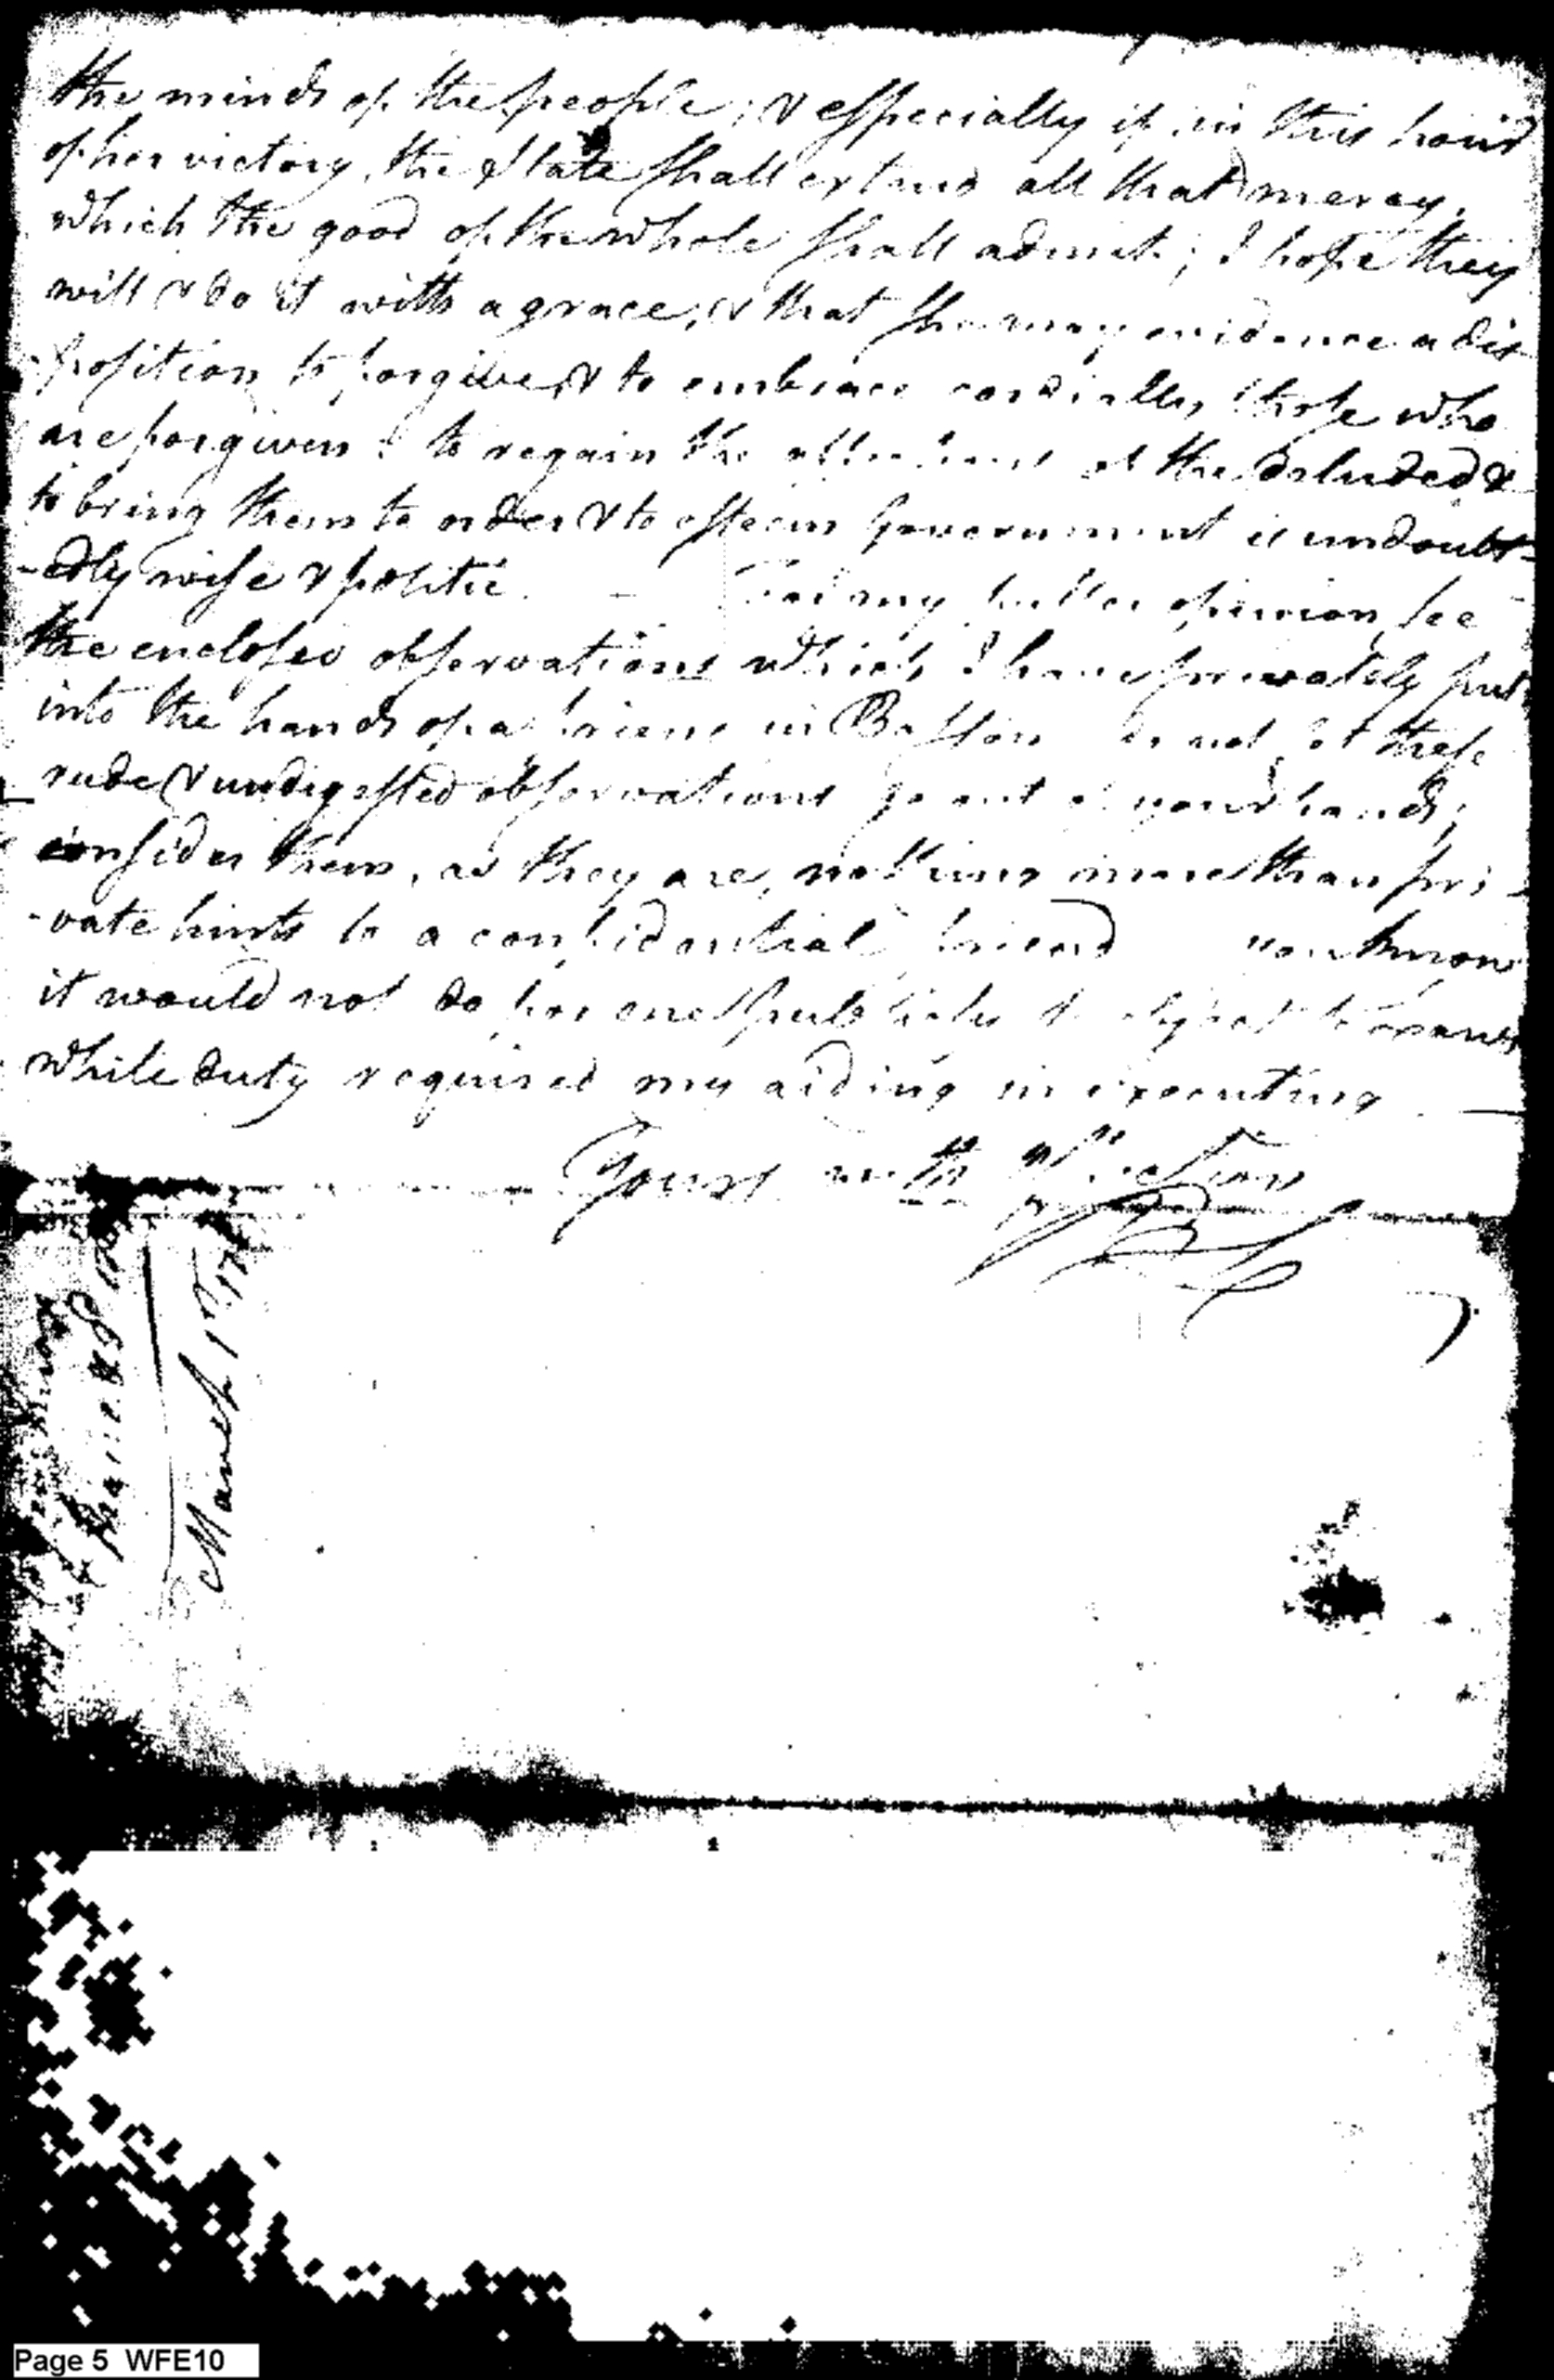 the minds of the people; & especially if in this hour
of her victory, the State shall extend all that mercy,
which the good of the whole shall admit; I hope they
will & do it with a grace, & that she may evidence a dis
-position to forgive & to embrace cordially, those who
are forgiven: to regain the of the deluded &
to bring them to order & to esteem Government is undoubt-
-edly wise & politic. my opinion see
the enclosed observations which I have privately put
into the hands of a friend in Boston do not let these
rude & undigested observations go out of your hands;
consider them, as they are, nothing more than pri-
-vate hints to a confidential friend you know
it would not do for one publickly to object to
while duty required my aiding in executing
Yours with affection
March 1st 17
Page 5 WFE10